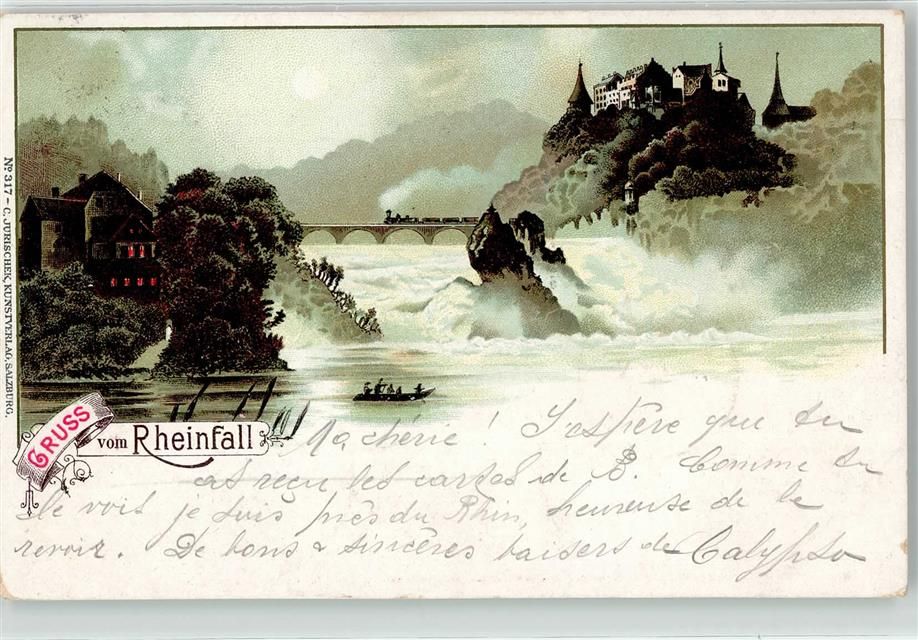 Nº 317 – C. JURISCHEK, KUNSTVERLAG, SALZBURG.
GRUSS
vom Rheinfall
Ma chérie ! J'espère que tu
as reçu les cartes de B. Comme tu
le vois je suis près du Rhin, heureuse de le
revoir. De bons & sincères baisers de Calypso